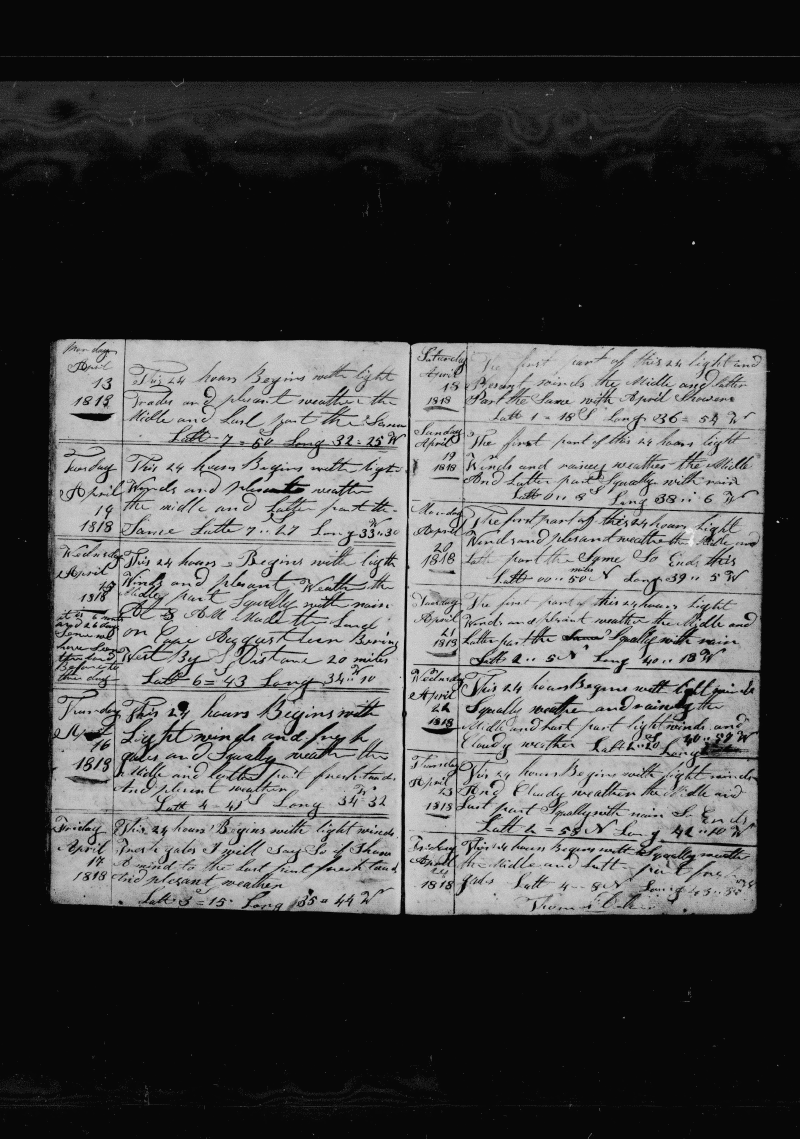 Monday
April
13
1818
This 24 hours Begins with light
Trades and plesant weather the
Midle and Last part the Same
Latt 7 = 50 Long 32 = 25 W
Tuesday
April
14
1818
This 24 hours Begins with light
Winds and plesant weather
the middle and Latter part the
Same Latt 7 .. 27 Long 33 .. 30 W
Wednesday
April
15
1818
at is 6 mo
and 26 days
Since we
have Seen
the land
Before to
the day
This 24 hours = Begins with ligth
Winds and plesant Weath the
Midley part Squally with rain
At 3 AM Made the Land
on Cape Augusteen Bering
West By S Distane 20 miles
Latt 6 = 43 Long 34 .. 10 W
Thursday
April
16
1818
This 24 hours Begins with
Light winds and fresh
gales and Squally weather the
Midle and latter part fresh trades
And plesent weather
Latt 4 - 41 S Long 34 - 32 W
Friday
April
17
1818
This 24 hours Begins with light winds
Fresh gales I will Say So if I have
A mind to the Last part fresh trad
And plesant weather
Latt 3 = 15 S Long 35 = 44 W
Saturday
April
18
1818
The first part of this 24 light and
Plesang winds the Midle and latter
Part the Same with April Showers
Latt 1 = 18 S Long 36 = 54 W
Sunday
April
19
1818
The first part of this 24 hours light
Winds and rainey weather the Midle
And Latter part Squally with rain
Latt 0 .. 8 S Long 38 .. 6 W
Monday
April
20
1818
The first part of this 24 hours Light
Winds and plesand weather the Midle and
Latt part the Same So Ends this
Latt 00 .. 50 miles N Long 39 .. 5 W
Tuesday
April
21
1818
The first part of this 24 hours light
Winds and plesant weather the Middle and
Latter part the Same Squally with rain
Latt 2 .. 5 N Long 40 .. 18 W
Wednesday
April
22
1818
This 24 hours Begins with ligll winds
Squally weather and rainey the
Midle and last part light winds and
Cloudy weather Latt Long 40 .. 57 W
Thursday
April
23
1818
This 24 hours Begins with light winds
And Cloudy weather the Midle and
Last part Squally with rain So Ends
Latt 2 = 55 N Long 42 .. 10 W
Friday
April
24
1818
This 24 hours Begins with Squally weather
the Midle and Latt part fresh
gales Latt 4 - 8 N Long 43 .. 35 W